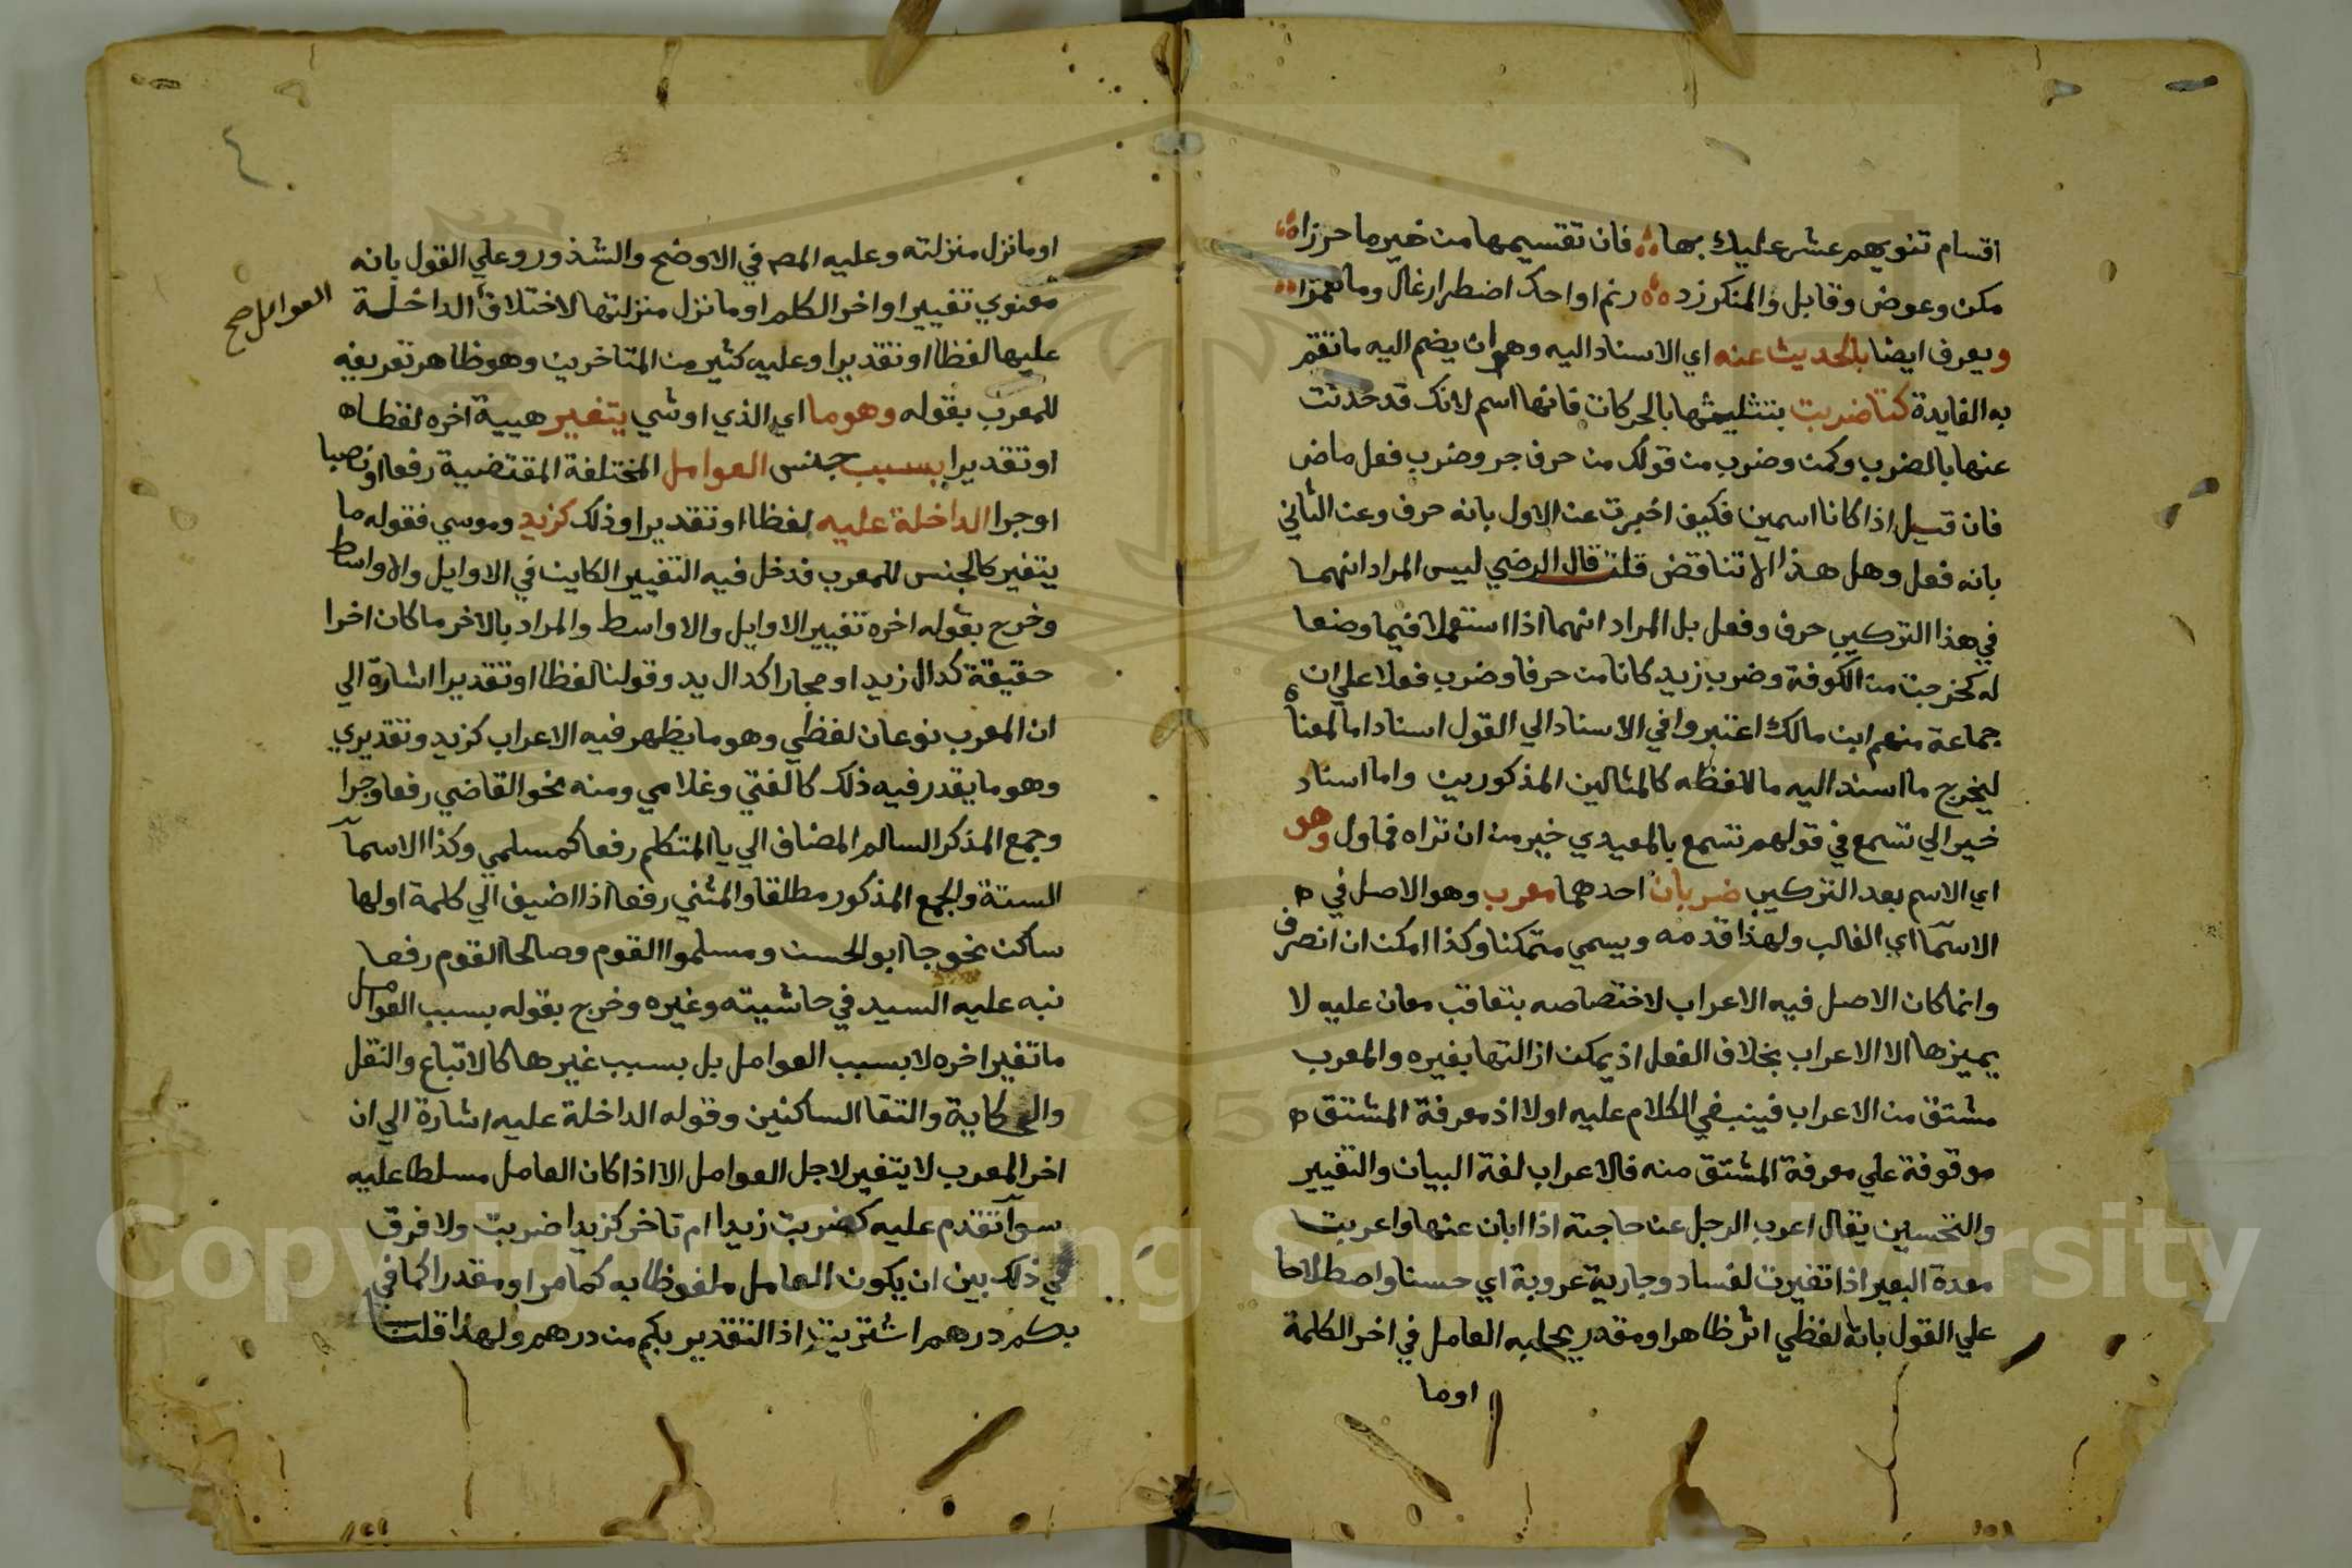 اقسام تنويهم عشر عليك بها ؞ فان تقسيمها من خير ما حرزا ؞
مكن وعوض وقابل والمنكر زد ؞ رنم او احك اضطرار غال وما همزا ؞
ويعرف ايضا بالحديث عنه اي الاسناد اليه وهو ان يضم اليه ما تتم
به الفايدة كتا ضربت بتثليثها بالحركات فانها اسم لانك قد حدثت
عنها بالضرب وكمن وضرب من قولك من حرف جر وضرب فعل ماض
فان قيل اذا كانا اسمين فكيف اخبرت عن الاول بانه حرف وعن الثاني
بانه فعل وهل هذا الا تناقض قلت قال الرضي ليس المراد انهما
في هذا التركيب حرف وفعل بل المراد انهما اذا استعملا فيما وضعا
له كخرجت من الكوفة وضرب زيد كانا من حرفا وضرب فعلا علي ان
جماعة منهم ابن مالك اعتبروا في الاسناد الي القول اسناد اما لمعنا
ليخرج ما اسند اليه ما للفظه كالمثالين المذكورين واما اسناد
خير الي تسمع في قولهم تسمع بالمعيدي خير من ان تراه فماول وهو
اي الاسم بعد التركيب ضربان احدهما معرب وهو الاصل في
الاسمآ اي الغالب ولهذا قدمه ويسمي متمكنا وكذا امكن ان انصرف
وانما كان الاصل فيه الاعراب لاختصاصه بتعاقب معان عليه لا
يميزها الا الاعراب بخلاف الفعل اذ يمكن ازالتها بغيره والمعرب
مشتق من الاعراب فينبغي الكلام عليه اولا اذ معرفة المشتق
موقوفة علي معرفة المشتق منه فالاعراب لغة البيان والتغيير
والتحسين يقال اعرب الرجل عن حاجته اذا ابان عنها واعربت
معدة البعير اذا تغيرت لفساد وجارية عروبة اي حسنا واصطلاحا
علي القول بانه لفظي اثر ظاهر او مقدر يجلبه العامل في اخر الكلمة
اوما
او ما نزل منزلته وعليه المصر في الاوضح والشذور وعلي القول بانه
معنوي تغيير اواخر الكلم او ما نزل منزلتها لاختلاف الداخلة
العوامل صح
عليها لفظا او تقديرا وعليه كثير من المتاخرين وهو ظاهر تعريفه
للمعرب بقوله وهو ما اي الذي او شي يتغير هيية اخره لفظا
او تقديرا بسبب جنس العوامل المختلفة المقتضية رفعا او نصبا
او جرا الداخلة عليه لفظا او تقديرا وذلك كزيد وموسي فقوله ما
يتغير كالجنس للمعرب فدخل فيه التغيير الكاين في الاوايل والاواسط
وخرج بقوله اخره تغيير الاوايل والاواسط والمراد بالاخر ما كان اخرا
حقيقة كدال زيد او مجازا كدال يد وقولنا لفظا او تقديرا اشارة الي
ان المعرب نوعان لفظي وهو ما يظهر فيه الاعراب كزيد وتقديري
وهو ما يقدر فيه ذلك كالفتي وغلامي ومنه نحو القاضي رفعا وجرا
وجمع المذكر السالم المضاف الي يا المتكلم رفعا كمسلمي وكذا الاسمآ
الستة والجمع المذكور مطلقا والمثني رفعا اذا اضيف الي كلمة اولها
ساكن نحو جا ابو الحسن ومسلموا القوم وصالحا القوم رفعا
نبه عليه السيد في حاشيته وغيره وخرج بقوله بسبب العوامل
ما تغير اخره لا بسبب العوامل بل بسبب غيرها كالاتباع والنقل
والحكاية والتقا الساكنين وقوله الداخلة عليه اشارة الي ان
اخر المعرب لا يتغير لاجل العوامل الا اذا كان العامل مسلطا عليه
سوآ تقدم عليه كضربت زيدا ام تاخر كزيدا ضربت ولا فرق
في ذلك بين ان يكون العامل ملفوظا به كما مر او مقدرا كما في
بكم درهم اشتريت اذ التقدير بكم من درهم ولهذا قلت
Copyright © King Saud University
195